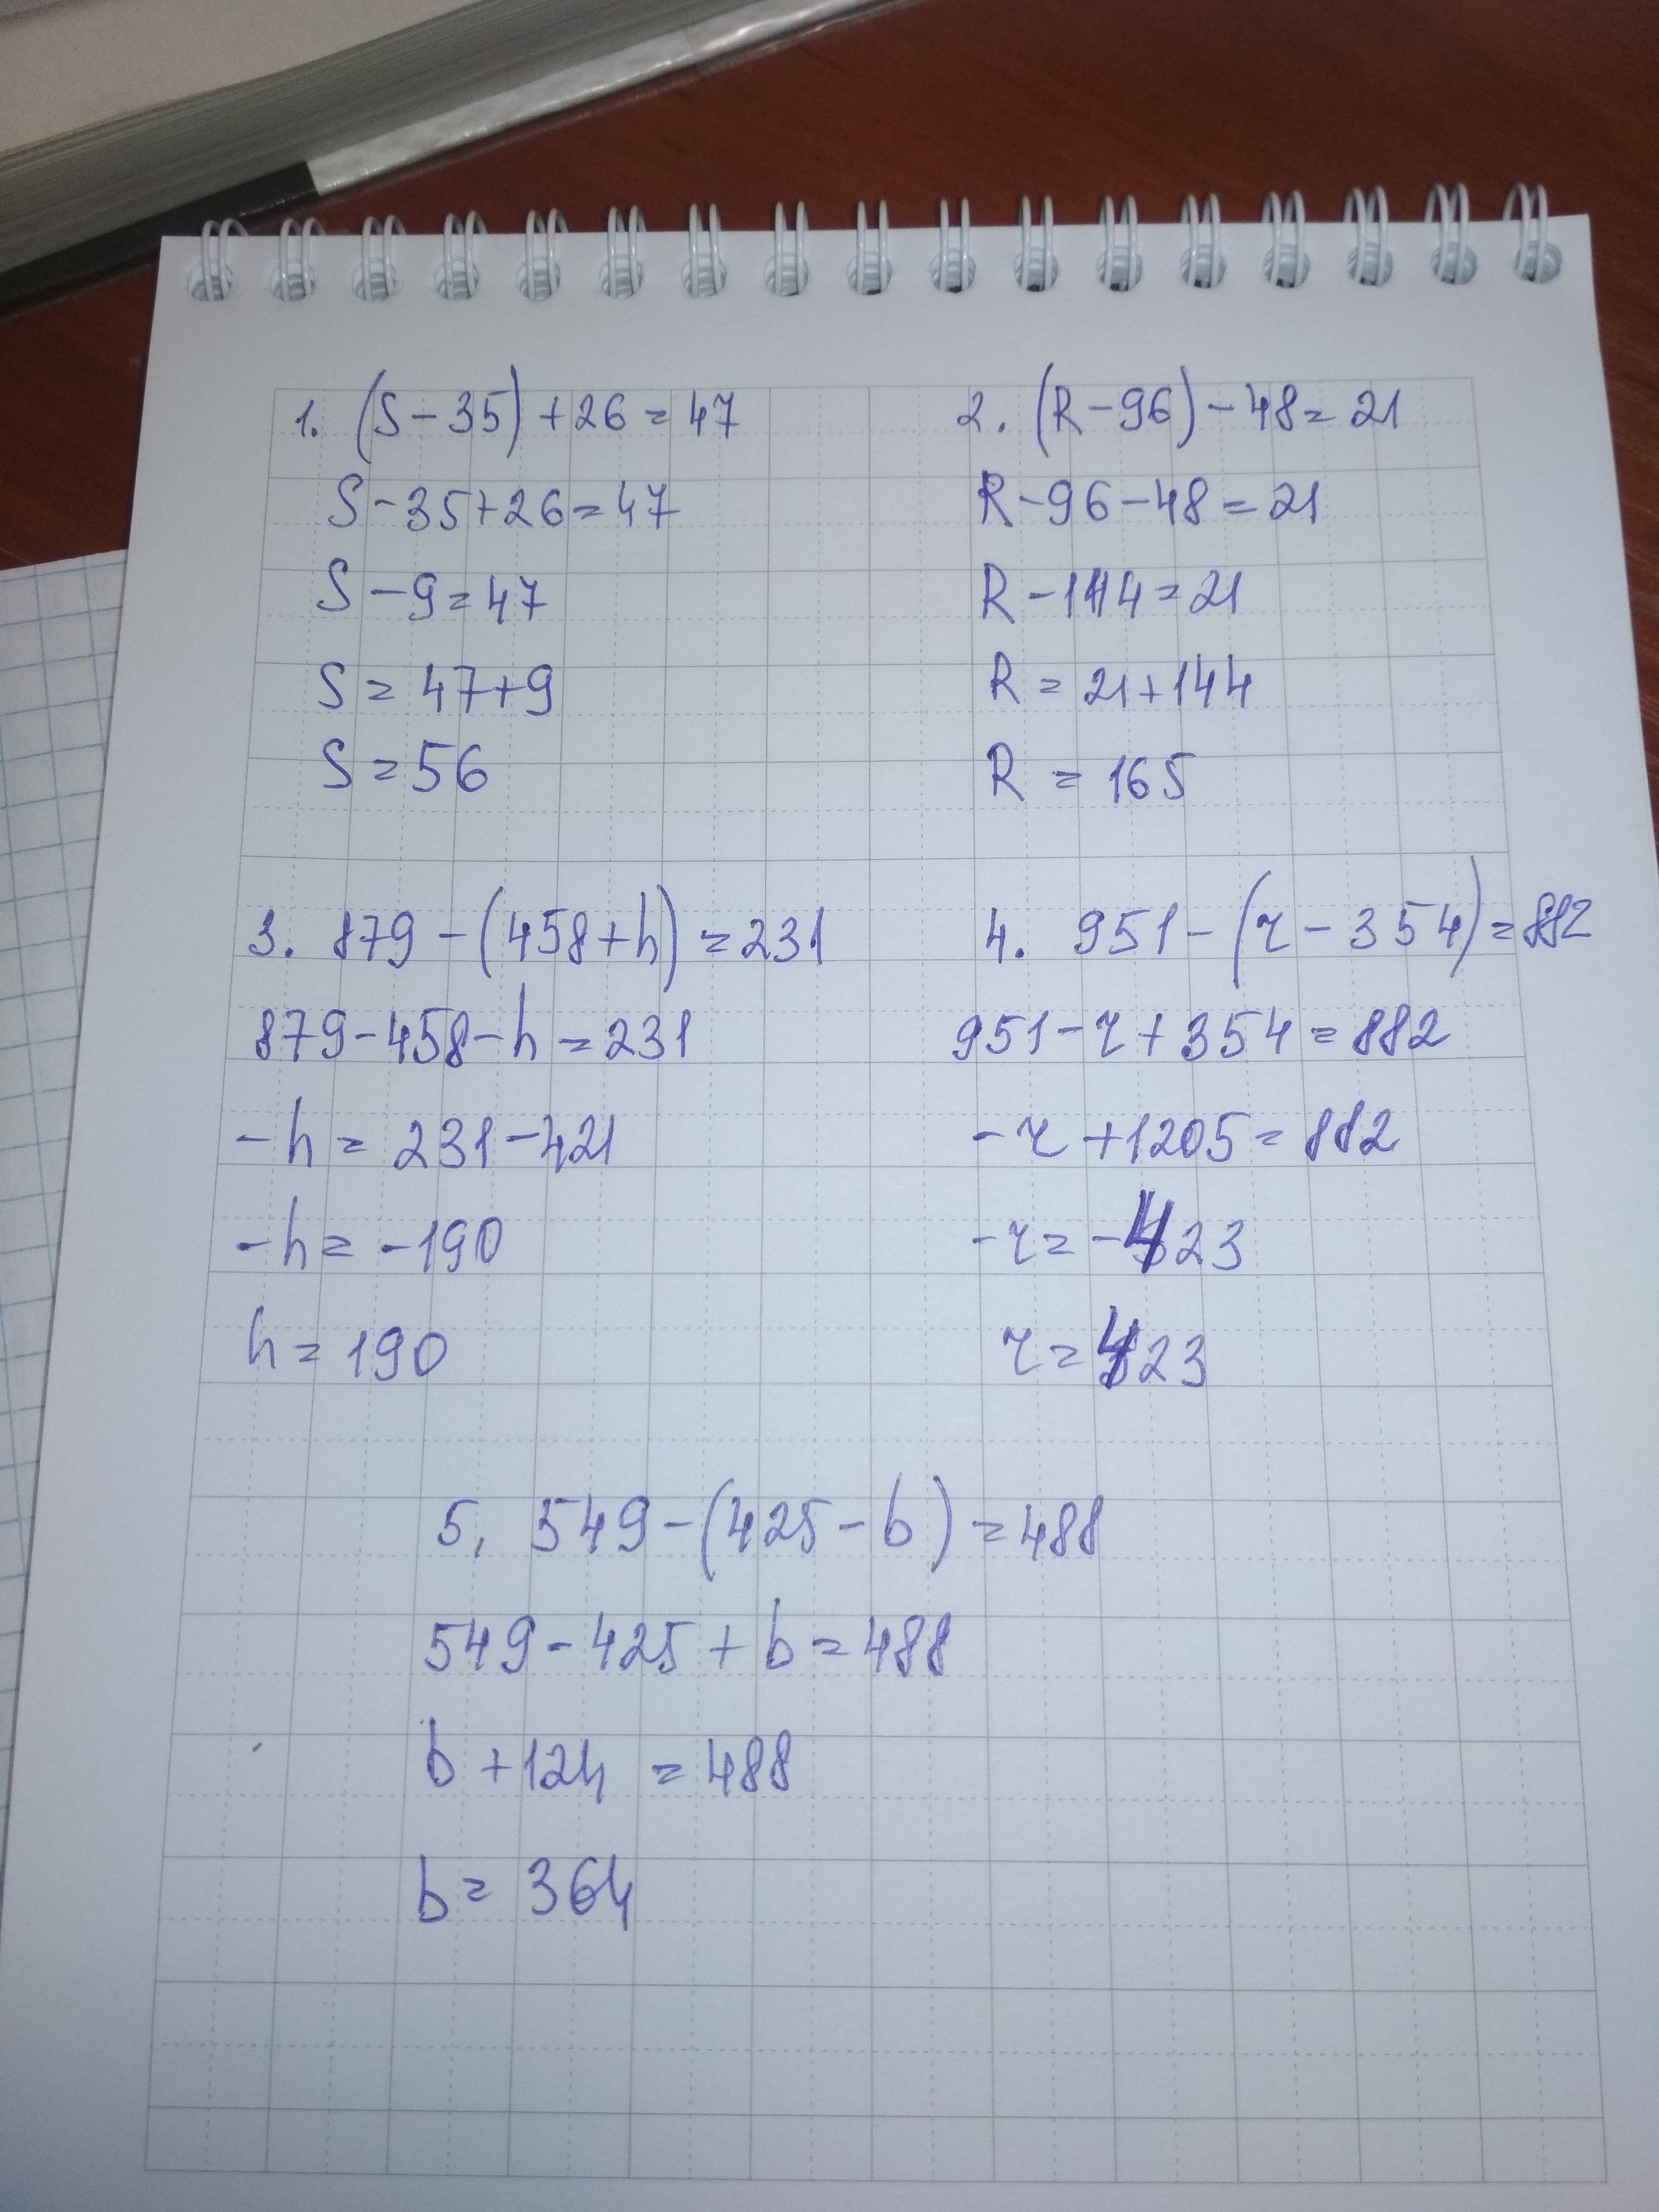 1. (S-35)+26=47
S-35+26=47
S-9=47
S=47+9
S=56
2. (R-96)-48=21
R-96-48=21
R-144=21
R=21+144
R=165
3. 879-(458+h)=231
879-458-h=231
-h=231-421
-h=-190
h=190
4. 951-(r-354)=882
951-r+354=882
-r+1205=882
-r=-423
r=423
5. 549-(425-b)=488
549-425+b=488
b+124=488
b=364